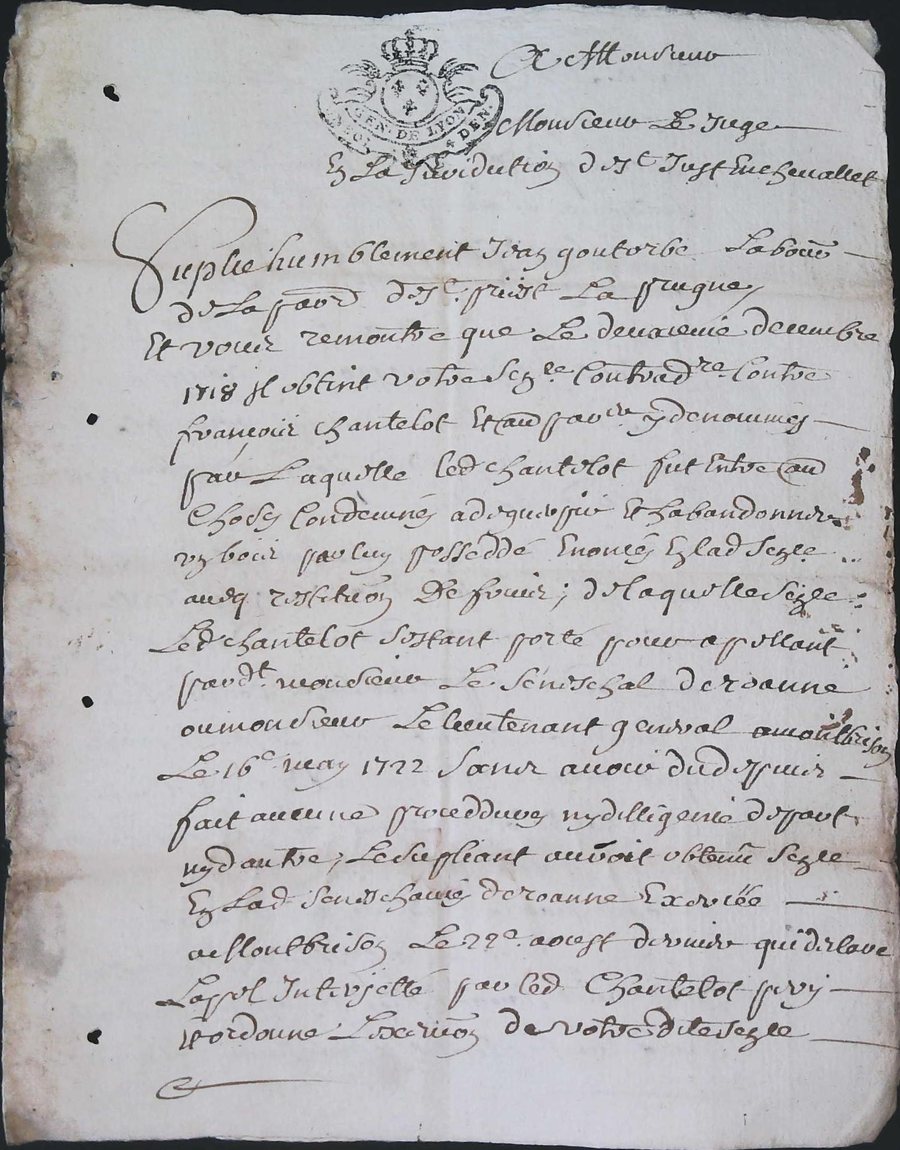 A Monsieur
GEN. DE LYON
DEN.
Monsieur Le Juge
En La Juridiction de St Just En chevallet
Suplie humblement Jean goutorbe Labour
de La parr de St priest La prugne
Et vous remontre que Le deuxieme decembre
1718 il obtint votre Sentence Contradre Contre
françois chantelot Et autres par icelle denommés
par Laquelle led chantelot fut Entre autres
Choses Condemné a deguerpir Et habandonner
un bois par luy possédé Enoncé En lad Senle
aveq restitution De fruis ; de laquelle Senle
Led chantelot s'estant porté pour apellant
pardt monsieur Le Séneschal de roanne
ou monsieur Le lieutenant general a montbrison
Le 16e may 1722 Sans avoir du depuis
fait aucune procedure ny dilligence de part
ny d'autre, Le Supliant auroit obtenu Senle
En Lad Seneschaucé de roanne Exercée
a Montbrison Le 22e aoust dernier qui declare
Lapel Interjetté par led Chantelot pery
et ordonne Lexecution de votre dite Senle